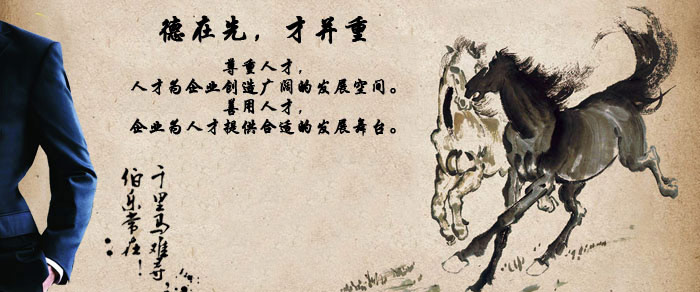 德在先，才并重
尊重人才，
人才为企业创造广阔的发展空间。
善用人才，
企业为人才提供合适的发展舞台。
千里马难寻
伯乐常在！